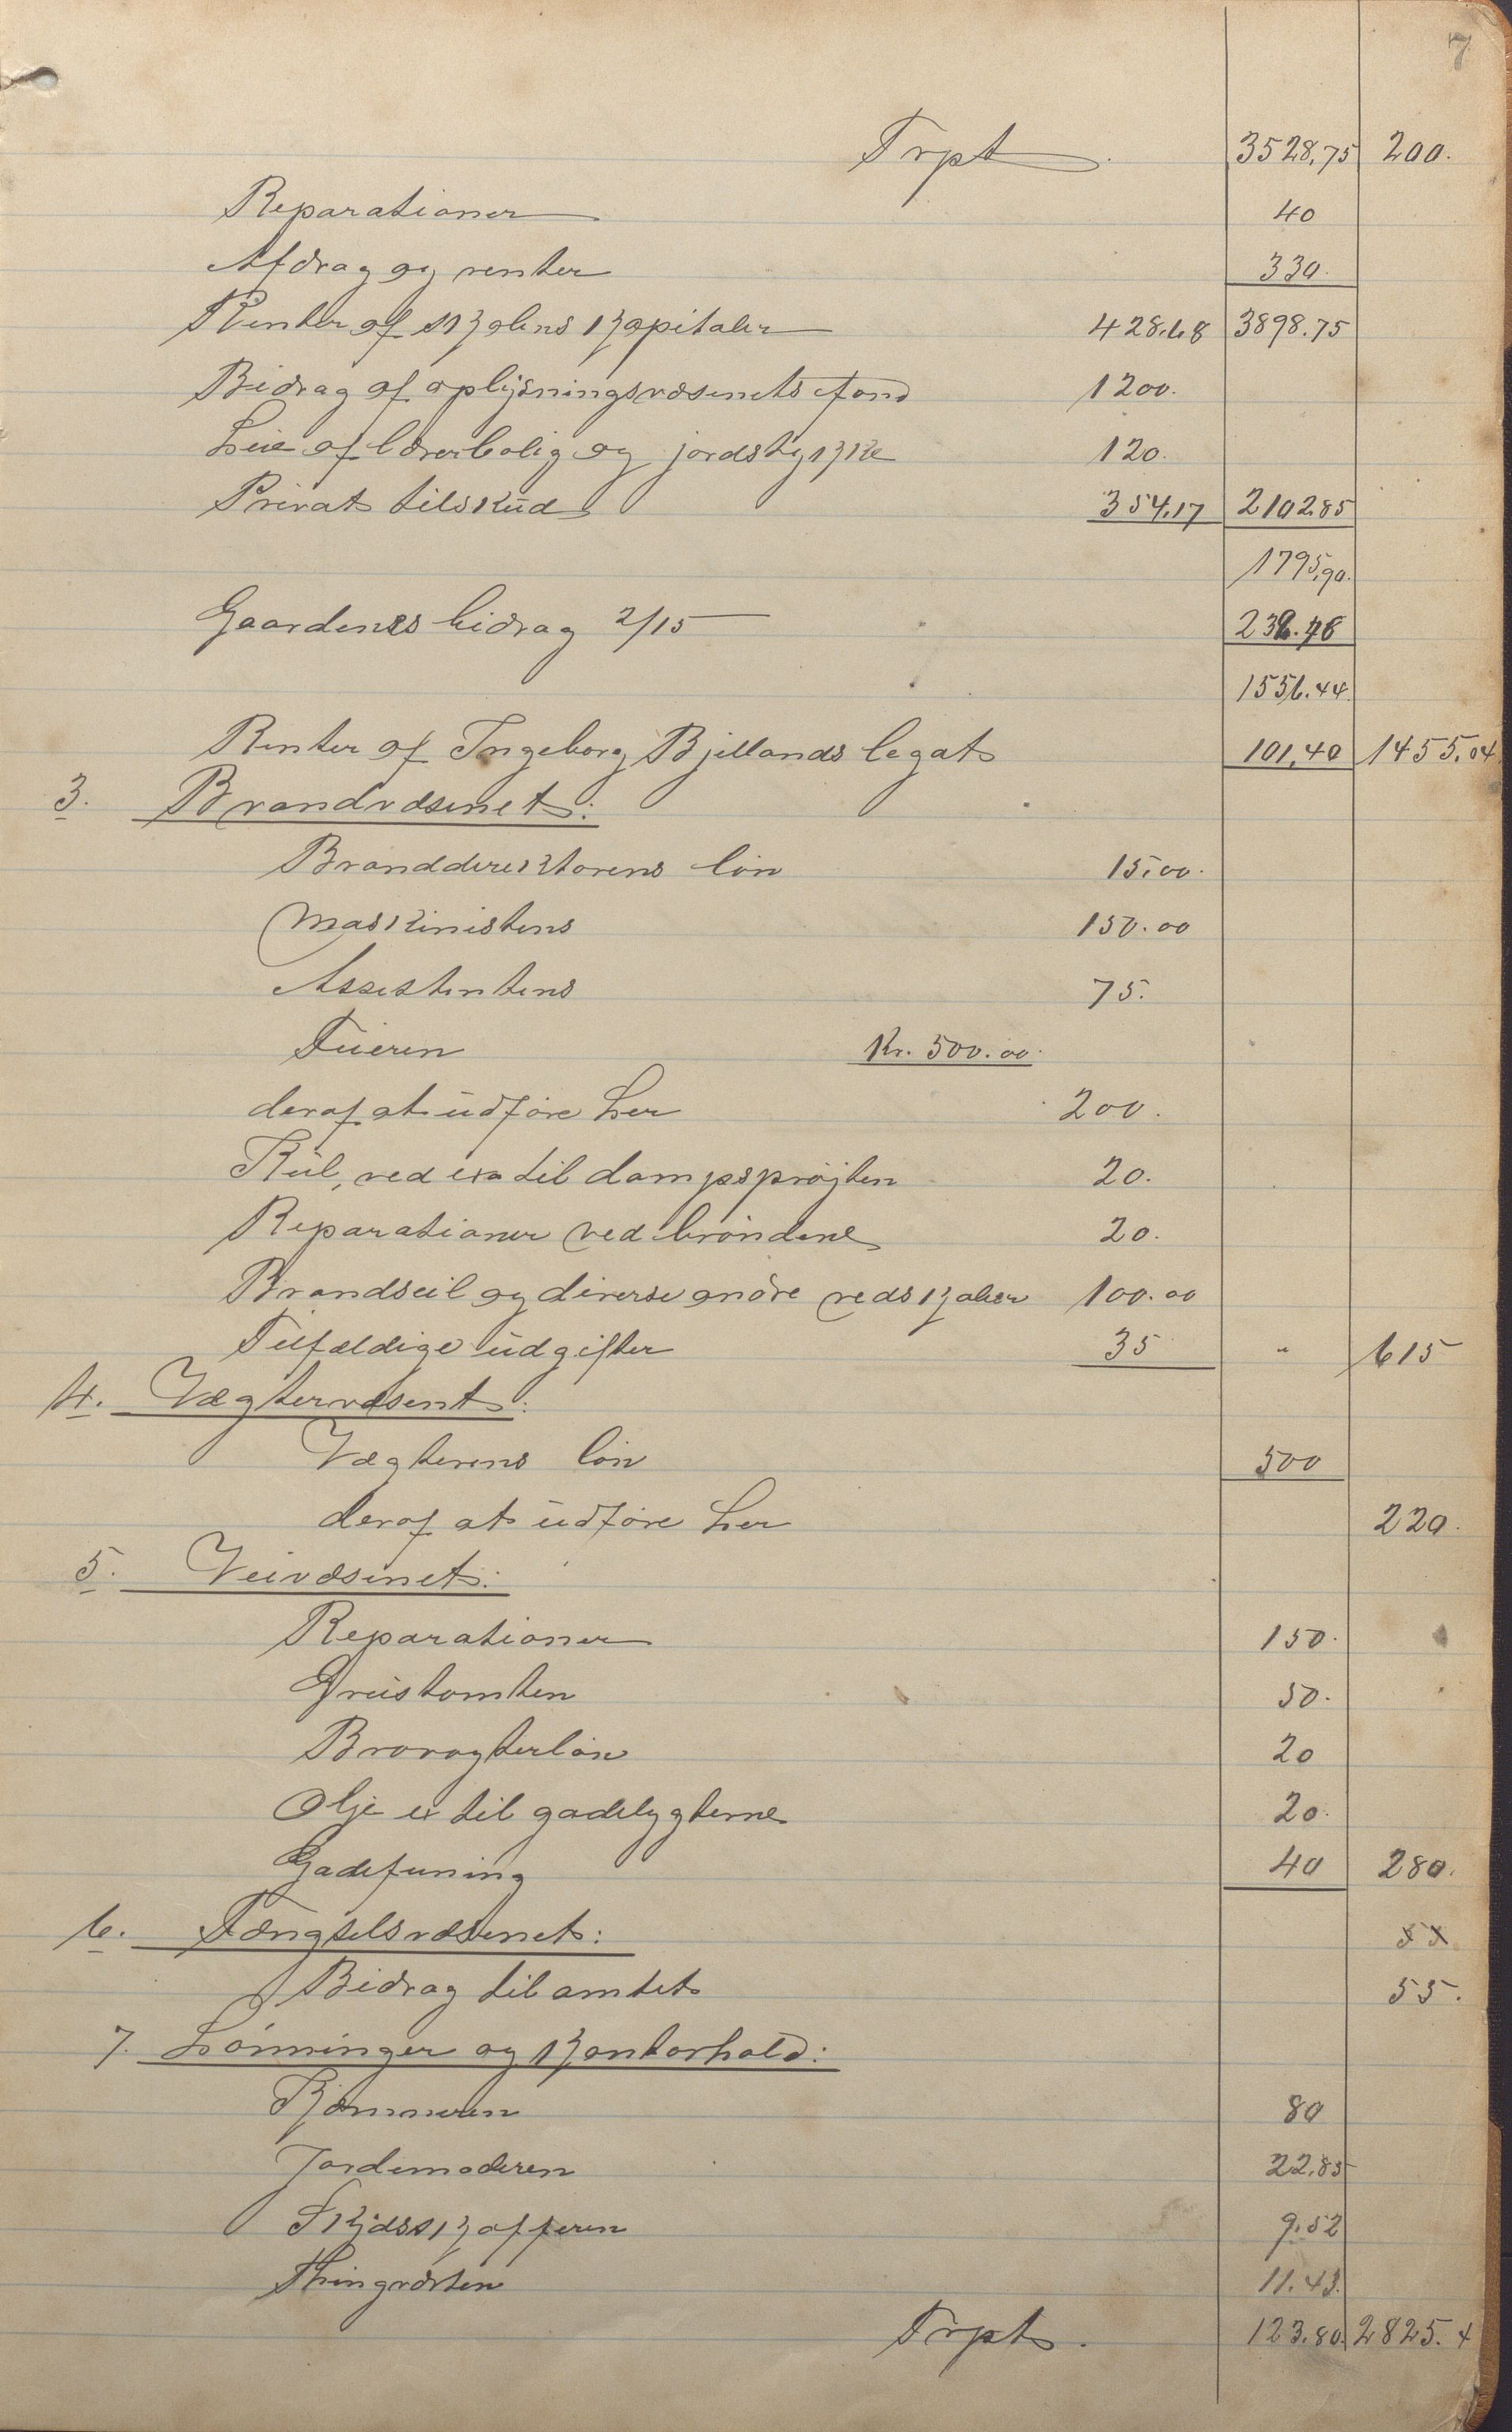 7
Trpt. 3528,75 200.
Reparationer 40
Afdrag og renter 330.
Renter af skolens kapitaler 428.68 3898.75
Bidrag af oplysningsvæsenets fond 1200.
Leie af lærerbolig og jordstykke 120.
Privat tilskud 354,17 2102.85
1795,90.
Gaardenes bidrag 2/15 239.46
1556.44.
Renter af Ingeborg Bjellands legat 101,40 1455.04
3. Brandvæsenet:
Branddirektørens løn 15,00.
Maskinistens 150.00
Assistentens 75.
Feieren Kr. 500.00.
deraf at udføre her 200.
Kul, ved etc til dampsprøjten 20.
Reparationer ved brøndene 20.
Brandseil og diverse andre redskaber 100.00
Tilfældige udgifter 35 " 615
4. Vægtervæsent:
Vægterens løn 500
deraf at udføre her 220.
5. Veivæsenet:
Reparationer 150.
Grustomten 50.
Brovogterløn 20
Olje etc til gadelygterne 20.
Gadefeining 40 280.
6. Fængselsvæsenet:
Bidrag til amtet 55.
7. Lønninger og kontorhold:
Kjæmneren 80
Jordemoderen 22,85
Skydsskafferen 9.52
Thingværten 11.43.
Trpt. 123.80. 2825.4